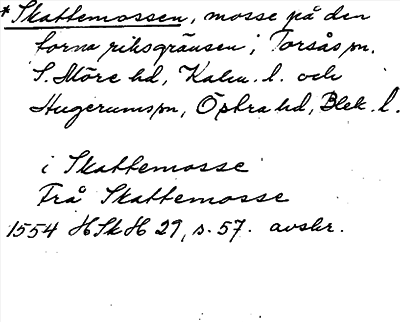 *Skattemossen, mosse på den
forna riksgränsen i Torsås sn,
S. Möre hd, Kalm. l. och
Hugerums sn, Östra hd, Blek. l.
i Skattemosse
Frå Skattemosse
1554 HSkH 29, s. 57. avskr.